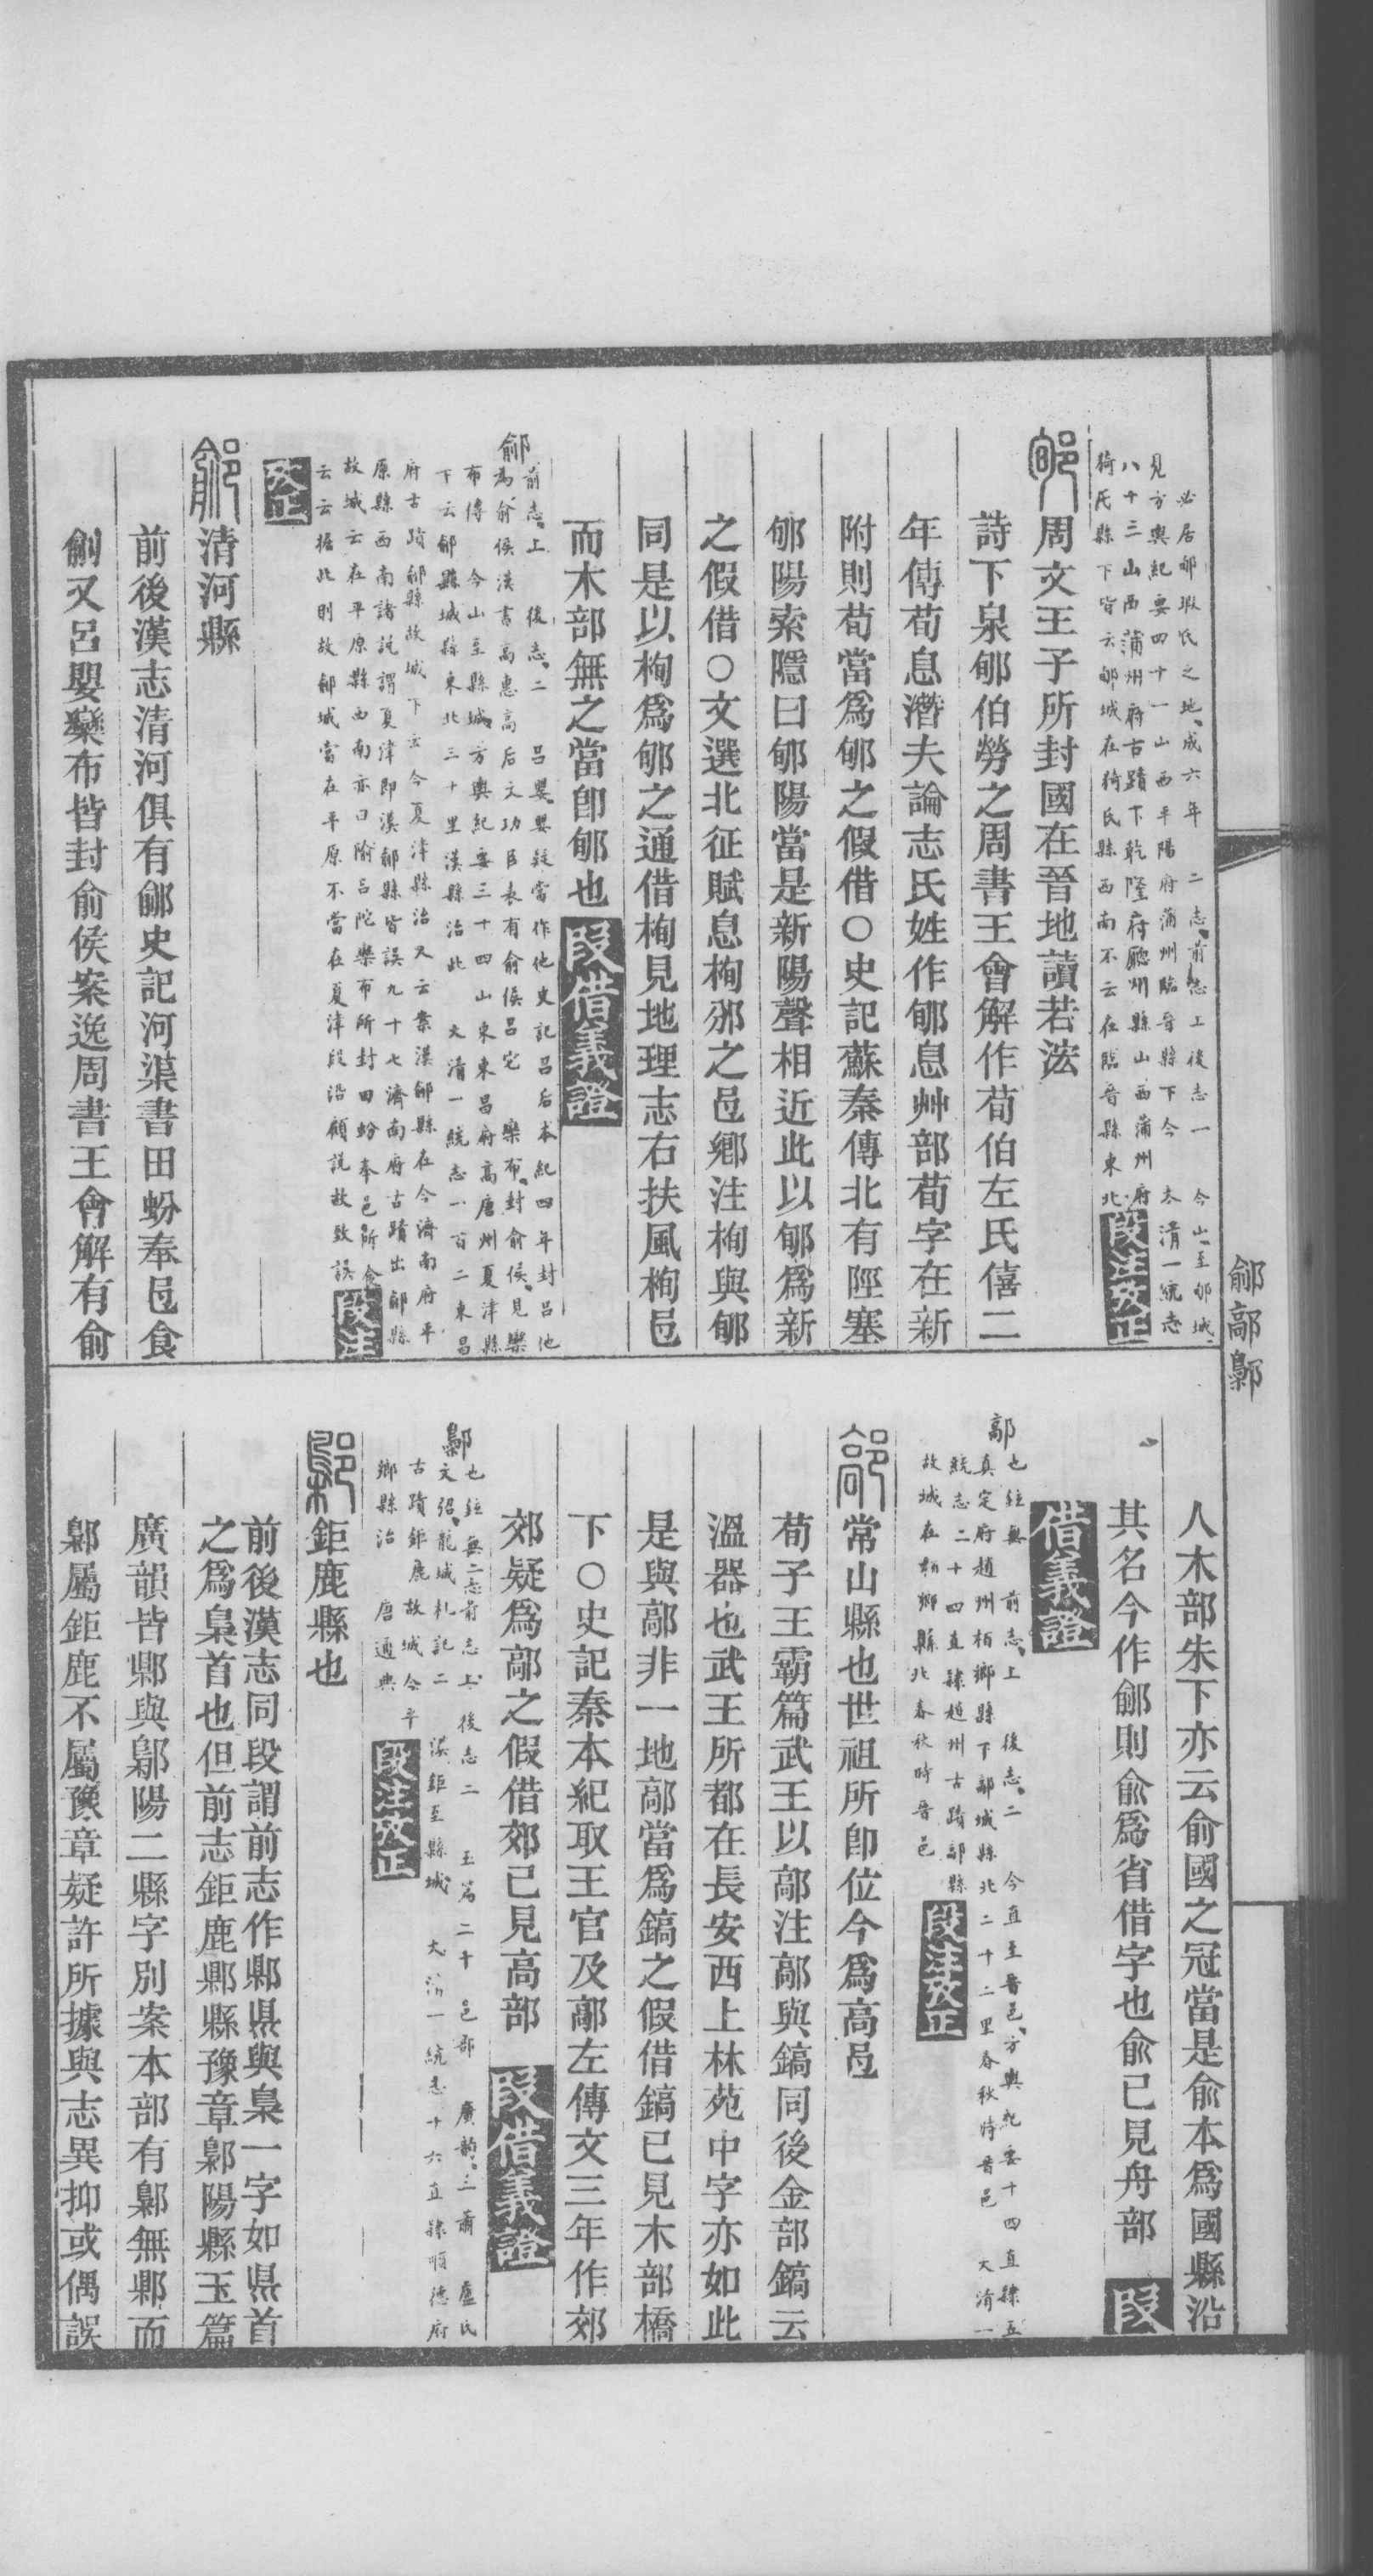 必居郇瑕氏之地成六年　二志前志上後志一　今山至郇城
見方輿紀要四十一山西平陽府蒲州臨晉縣下今　大清一統志
八十三山西蒲州府古蹟下
猗氏縣下皆云郇城在猗氏縣西南不云在臨晉縣東北　段注攷正
周文王子所封國在晉地讀若泫
詩下泉郇伯勞之周書王會解作荀伯左氏僖二
年傳荀息潛夫論志氏姓作郇息艸部荀字在新
附則荀當爲郇之假借○史記蘇秦傳北有陘塞
郇陽索隱曰郇陽當是新陽聲相近此以郇爲新
之假借○文選北征賦息栒邠之邑鄉注栒與郇
同是以栒爲郇之通借栒見地理志右扶風栒邑
而木部無之當卽郇也　段借義證
鄃　前志上　後志二　呂嬰嬰疑當作他史記呂后本紀四年封呂他
爲俞侯漢書高惠高后文功臣表有俞侯呂它　欒布封俞侯見欒
布傳　今山至縣城方輿紀要三十四山東東昌府高唐州夏津縣
下云鄃縣城縣東北三十里漢縣治此　大清一統志一百二東昌
府古蹟鄃縣故城下云今夏津縣治又云案漢鄃縣在今濟南府平
原縣西南諸說謂夏津卽漢鄃縣皆誤九十七濟南府古蹟出鄃縣
故城云在平原縣西南亦曰隃呂陀欒布所封田蚡奉邑所食
云云據此則故鄃城當在平原不當在夏津段沿顧說故致誤　段注
攷正
清河縣
前後漢志清河俱有鄃史記河渠書田蚡奉邑食
鄃又呂嬰欒布皆封俞侯案逸周書王會解有俞
鄃鄗鄡
人木部朱下亦云俞國之冠當是俞本爲國縣沿
其名今作鄃則俞爲省借字也俞已見舟部　段
借義證
鄗　也經無　前志上　後志二　今直至晉邑方輿紀要十四直隸五
真定府趙州柏鄉縣下鄗城縣北二十二里春秋時晉邑　大清一
統志二十四直隸趙州古蹟鄗縣
故城在柏鄉縣北春秋時晉邑　段注攷正
常山縣也世祖所卽位今爲高邑
荀子王霸篇武王以鄗注鄗與鎬同後金部鎬云
溫器也武王所都在長安西上林苑中字亦如此
是與鄗非一地鄗當爲鎬之假借鎬已見木部橋
下○史記秦本紀取王官及鄗左傳文三年作郊
郊疑爲鄗之假借郊已見高部　段借義證
鄡　也經無二志前志上　後志二　玉篇二十　邑部　廣韵三蕭　盧氏
文弨龍城札記二　漢鉅至縣城　大清一統志十六直隸順德府
古蹟鉅鹿故城今平
鄉縣治　唐通典　段注攷正
鉅鹿縣也
前後漢志同段謂前志作鄡県與梟一字如県首
之爲梟首也但前志鉅鹿鄡縣豫章鄡陽縣玉篇
廣韻皆鄡與鄡陽二縣字別案本部有鄡無鄡而
鄡屬鉅鹿不屬豫章疑許所據與志異抑或偶誤